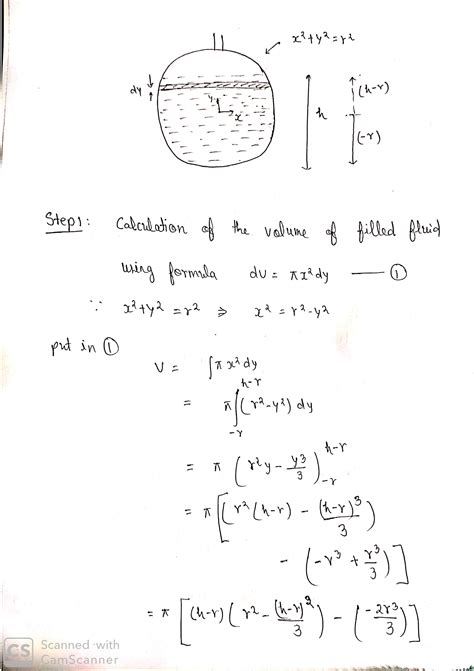 x²+y²=r²
dy
y
x
h
(h-r)
(-r)
Step1: Calculation of the volume of filled fluid
using formula dv = πx²dy — ①
∵ x²+y² = r² ⇒ x² = r²-y²
put in ①
V = ∫πx²dy
= π∫_{-r}^{h-r} (r²-y²) dy
= π (r²y - y³/3)_{-r}^{h-r}
= π[(r²(h-r) - (h-r)³/3)
- (-r³ + r³/3)]
= π [(h-r)(r² - (h-r)²/3) - (-2r³/3)]
CS Scanned with
CamScanner